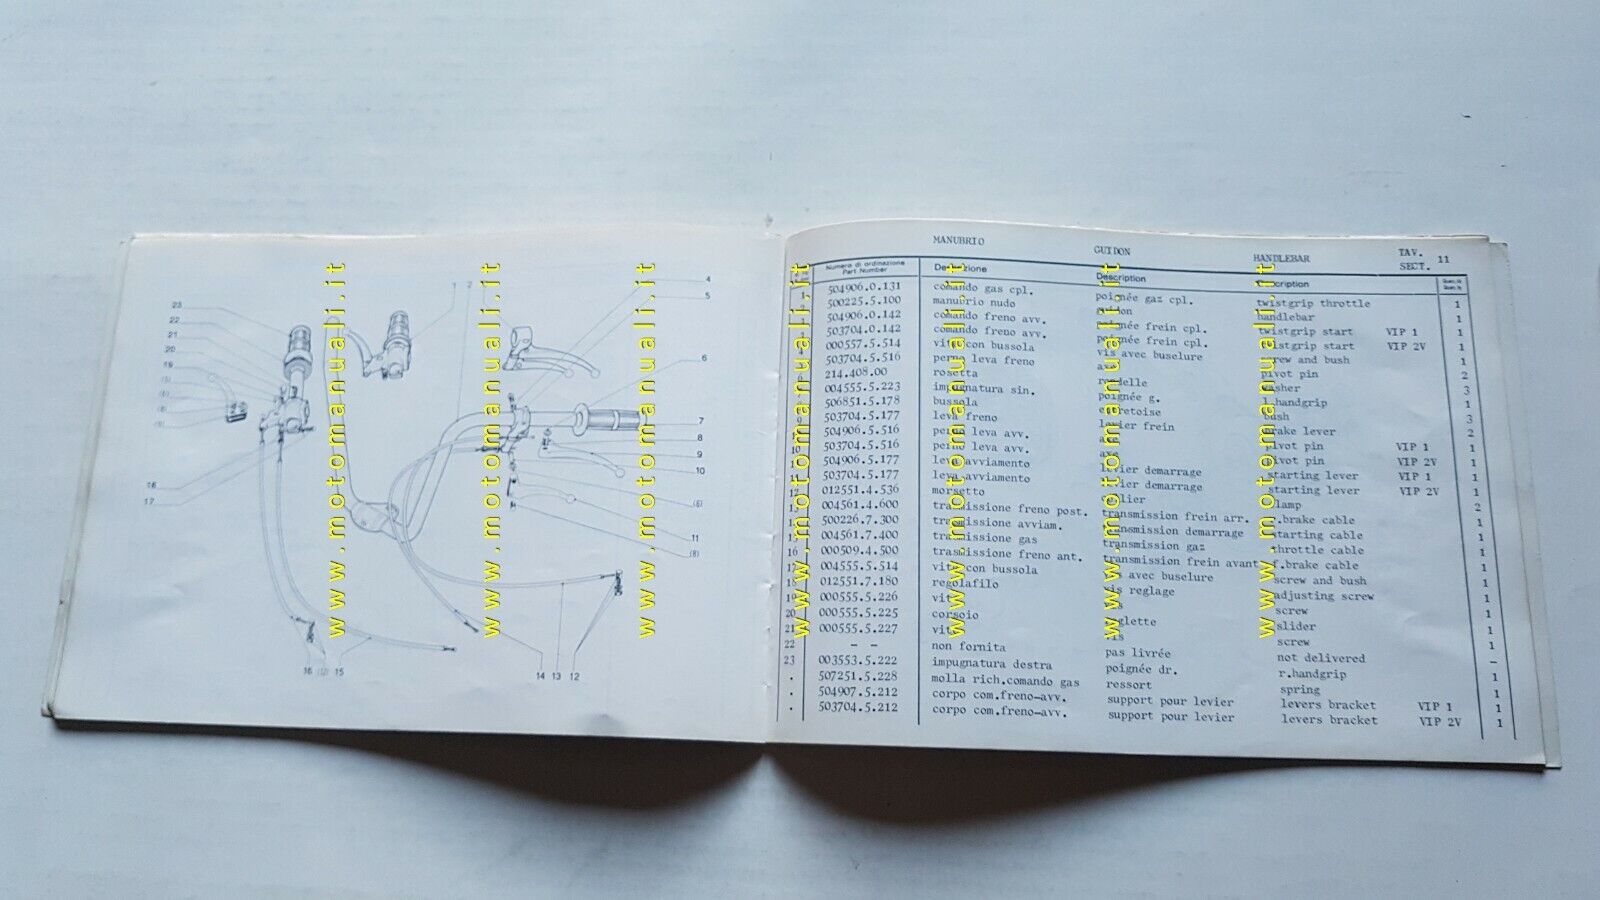 23
22
21
20
19
(5)
(6)
(8)
18
17
16 (12) 15
1 2
4
5
6
7
8
9
10
(6)
11
(8)
14 13 12
www.motomanuali.it
www.motomanuali.it
www.motomanuali.it
MANUBRIO GUIDON HANDLEBAR TAV. SECT. 11
Numero di ordinazione
Part Number
Description
1 504906.0.131 comando gas cpl. poignée gaz cpl. twistgrip throttle 1
2 500225.5.100 manubrio nudo guidon handlebar 1
504906.0.142 comando freno avv. poignée frein cpl. twistgrip start VIP 1 1
503704.0.142 comando freno avv. poignée frein cpl. twistgrip start VIP 2V 1
4 000557.5.514 vite con bussola vis avec buselure screw and bush 1
503704.5.516 perno leva freno axe pivot pin 2
6 214.408.00 rosetta rondelle washer 3
004555.5.223 impugnatura sin. poignée g. l.handgrip 1
506851.5.178 bussola entretoise bush 3
9 503704.5.177 leva freno levier frein brake lever 2
504906.5.516 perno leva avv. axe pivot pin VIP 1 1
10 503704.5.516 perno leva avv. axe pivot pin VIP 2V 1
504906.5.177 leva avviamento levier demarrage starting lever VIP 1 1
503704.5.177 leva avviamento levier demarrage starting lever VIP 2V 1
12 012551.4.536 morsetto collier clamp 2
13 004561.4.600 trasmissione freno post. transmission frein arr. r.brake cable 1
500226.7.300 trasmissione avviam. transmission demarrage starting cable 1
15 004561.7.400 trasmissione gas transmission gaz throttle cable 1
16 000509.4.500 trasmissione freno ant. transmission frein avant f.brake cable 1
17 004555.5.514 vite con bussola vis avec buselure screw and bush 1
18 012551.7.180 regolafilo vis reglage adjusting screw 1
19 000555.5.226 vite vis screw 1
20 000555.5.225 corsoio reglette slider 1
21 000555.5.227 vite vis screw 1
22 – – non fornita pas livrée not delivered –
23 003553.5.222 impugnatura destra poignée dr. r.handgrip 1
. 507251.5.228 molla rich.comando gas ressort spring 1
. 504907.5.212 corpo com.freno-avv. support pour levier levers bracket VIP 1 1
. 503704.5.212 corpo com.freno-avv. support pour levier levers bracket VIP 2V 1
www.motomanuali.it
www.motomanuali.it
www.motomanuali.it
www.motomanuali.it